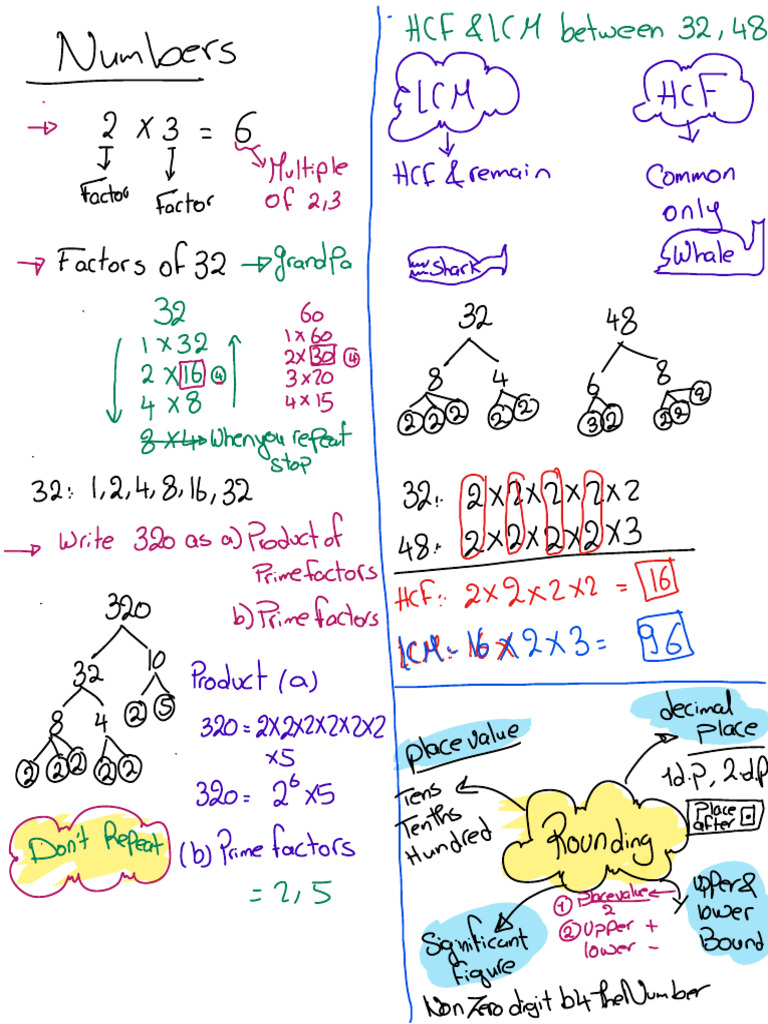 Numbers
→ 2 × 3 = 6
Factor Factor
Multiple
of 2,3
→ Factors of 32 → grandpa
32
1 × 32
2 × 16 ④
4 × 8
8 × 4 → When you repeat
stop
60
1 × 60
2 × 30 ④
3 × 20
4 × 15
32: 1,2,4,8,16,32
→ Write 320 as a) Product of
Prime factors
b) Prime factors
320
32 10
8 4 2 5
2 2 2 2 2
Product (a)
320 = 2×2×2×2×2×2
×5
320 = 2⁶ × 5
Don't Repeat
(b) Prime factors
= 2, 5
HCF & LCM between 32, 48
LCM
HCF & remain
Shark
HCF
Common
only
Whale
32
8 4
2 2 2 2 2
48
6 8
3 2 2 2 2
32: 2×2×2×2×2
48: 2×2×2×2×3
HCF: 2×2×2×2 = 16
LCM: 16 × 2 × 3 = 96
Place value
Tens
Tenths
Hundred
decimal
place
1d.p, 2.d.p
Place
after .
Rounding
Upper &
lower
Bound
① Place value
2
② Upper +
lower -
Significant
figure
Non Zero digit b4 the Number